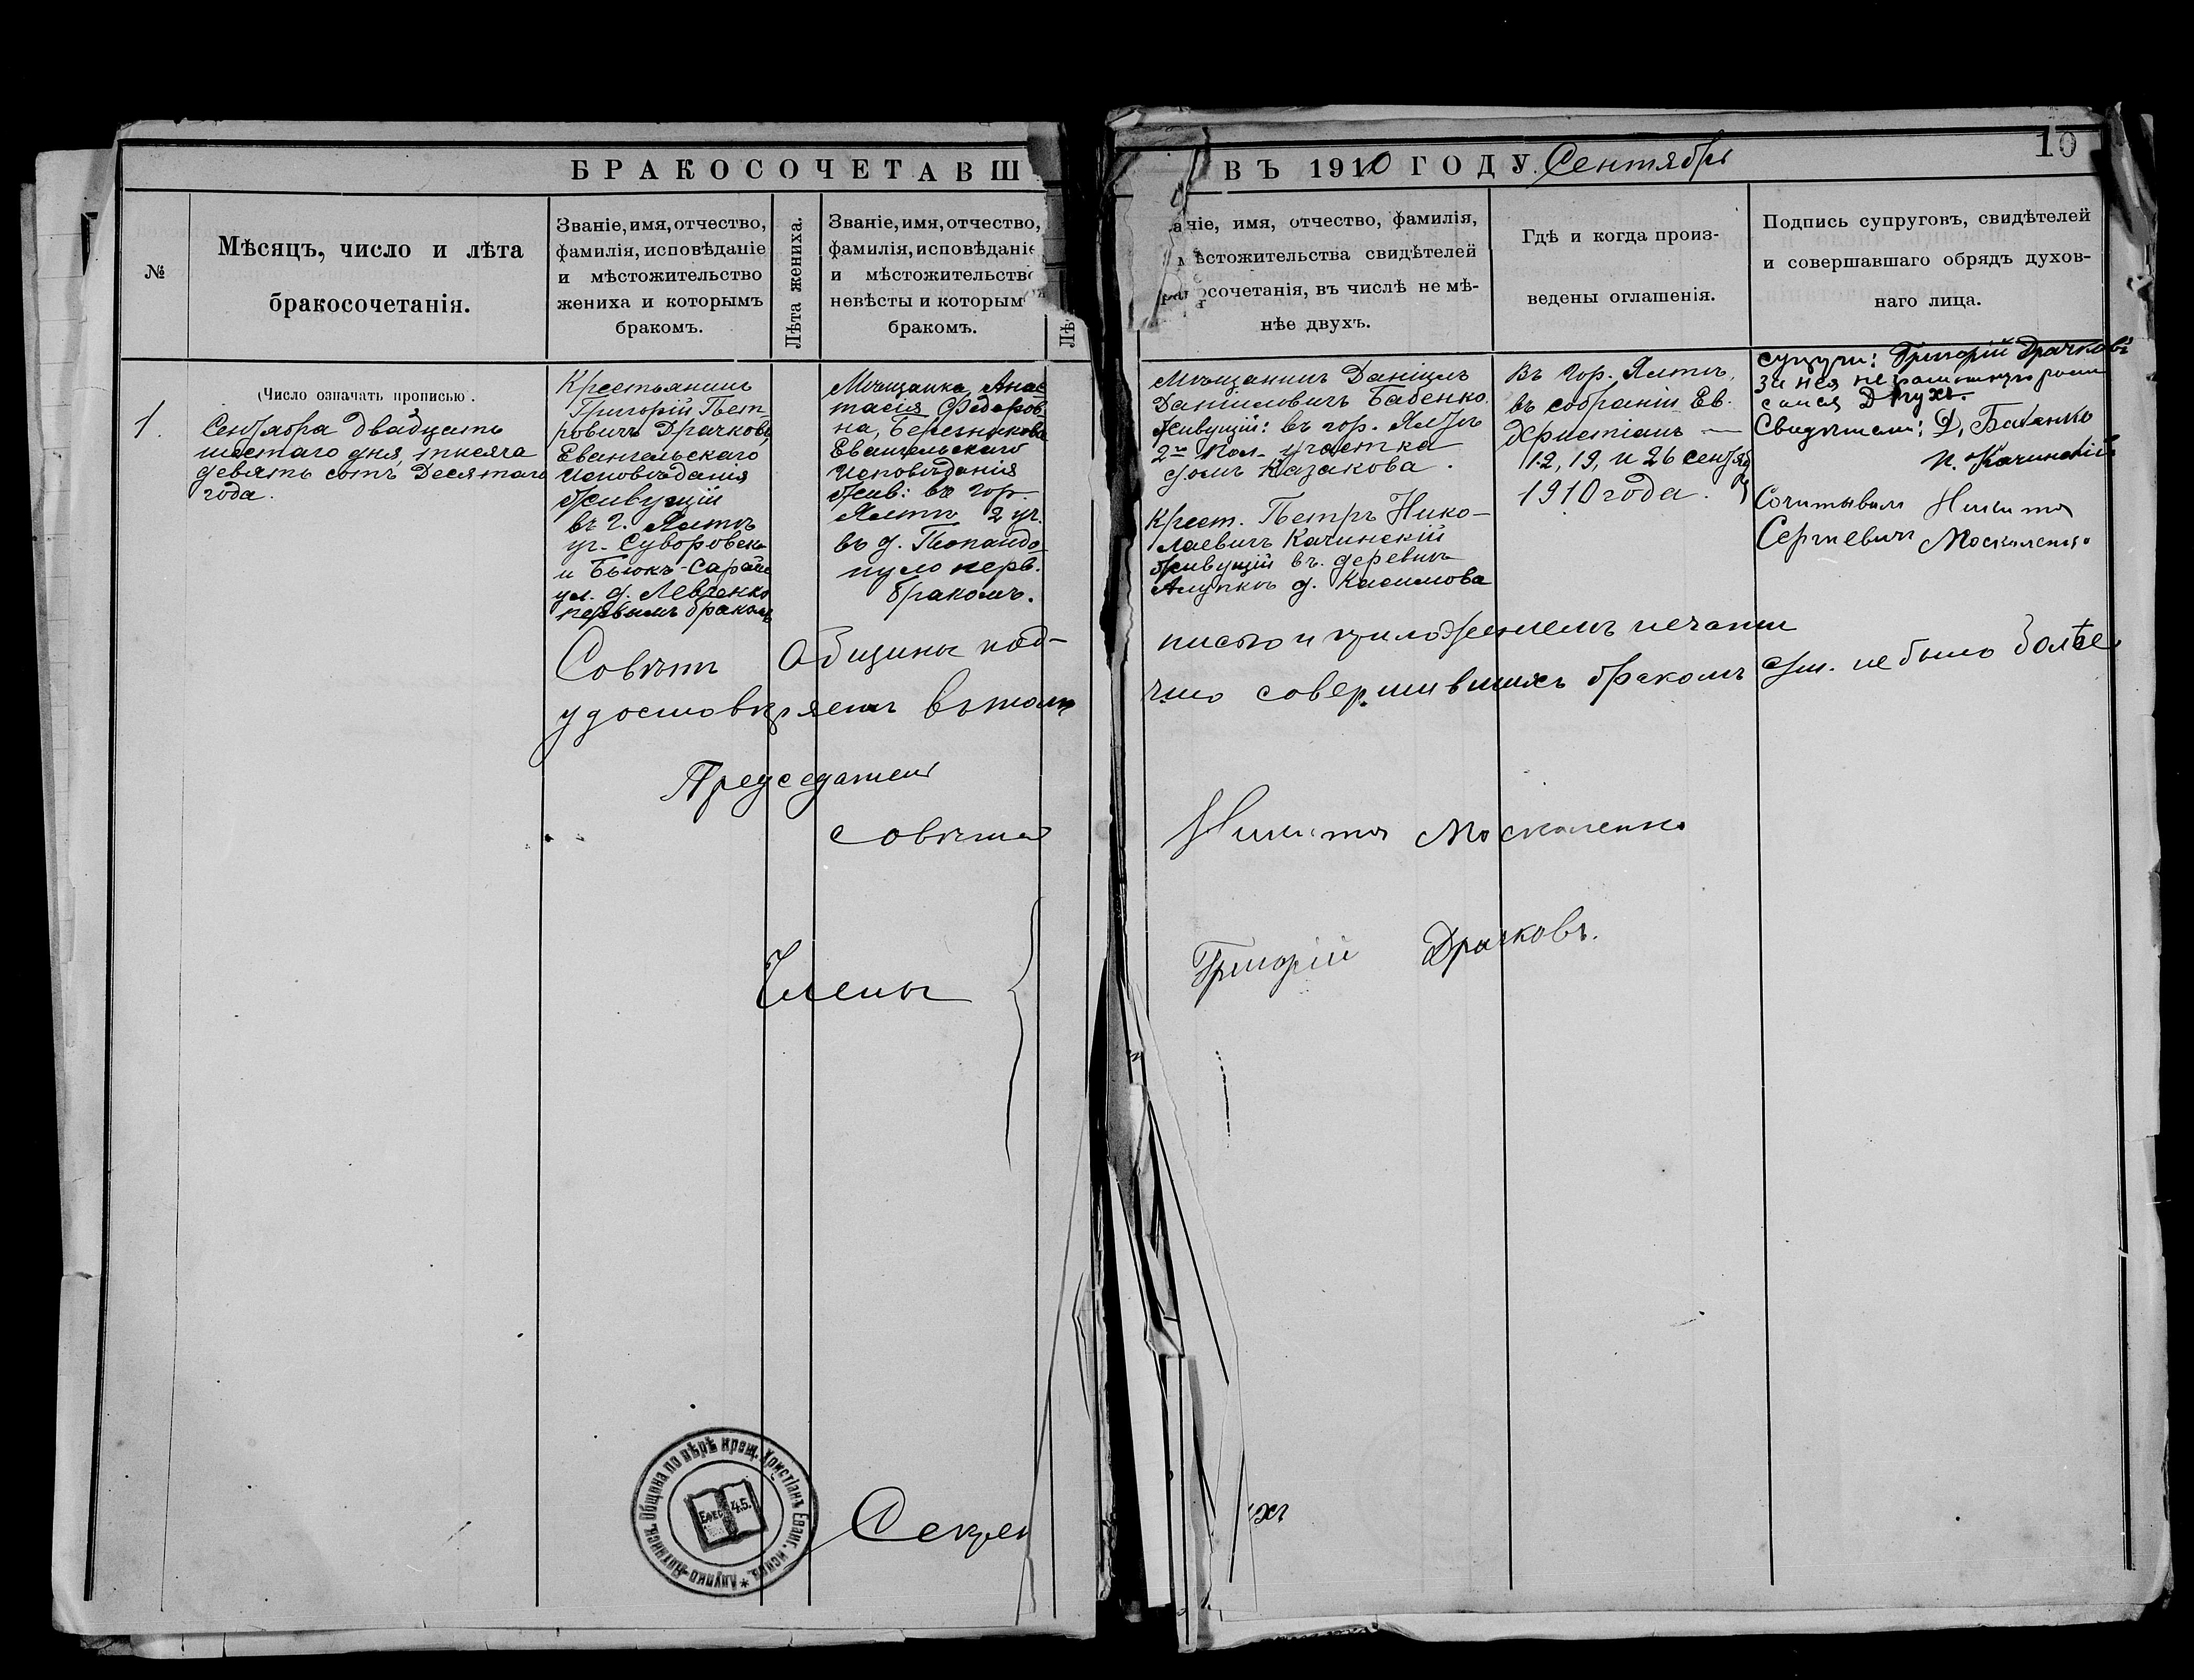 БРАКОСОЧЕТАВШ
ВЪ 1910 ГОДУ. Сентябрь
10
№
Мѣсяцъ, число и лѣта
бракосочетанія.
Званіе, имя, отчество,
фамилія, исповѣданіе
и мѣстожительство
жениха и которымъ
бракомъ.
Лѣта жениха.
Званіе, имя, отчество,
фамилія, исповѣданіе
и мѣстожительство
невѣсты и которым
бракомъ.
Лѣ
аніе, имя, отчество, фамилія,
мѣстожительства свидѣтелей
бракосочетанія, въ числѣ не мѣ-
нѣе двухъ.
Гдѣ и когда произ-
ведены оглашенія.
Подпись супруговъ, свидѣтелей
и совершавшаго обрядъ духов-
наго лица.
(Число означать прописью).
1.
Сентября двадцать
шестаго дня, тысяча
девять сотъ Десятаго
года.
Крестьянинъ
Григорій Пет
ровичъ Драчковъ
Евангельскаго
исповѣданія
живущій
въ г. Ялтѣ
уг. Суворовск.
и Бьюкъ-Сарай
ул. д. Левченко
первымъ бракомъ
Мѣщанка, Анас
тасія Федоров
на, Березникова
Евангельскаго
исповѣданія
жив: въ гор.
Ялтѣ 2 уч.
въ д. Попандо
пуло перв.
бракомъ.
Мѣщанинъ Даніилъ
Даниловичъ Бабенко
живущій: въ гор. Ялтѣ
2го пол. участка
домъ Казакова.
Крест. Петръ Нико-
лаевичъ Качинскій
живущій въ деревнѣ
Алупкѣ д. Касимова
Въ гор. Ялтѣ,
въ собраніи Ев.
Христіанъ —
12, 19, и 26 сентяб
ря
1910 года.
супруги: Григорій Драчковъ
за нея неграмотную роспи
сался
Свидѣтели: Д. Бабенко
П. Качинскій
Сочитывалъ Никита
Сергѣевичъ Москаленко
Совѣтъ Общины под-
писью и приложеніемъ печати
удостовѣряетъ въ томъ
что совершившихся бракомъ не было болѣе
Предсѣдатель
совѣта
Никита Москаленко
Члены
Григорій Драчковъ.
Секре
Алупко-Ялтинск. Община по вѣрѣ крещ. Христіанъ Еванг. испов.
Ефес 4.5.